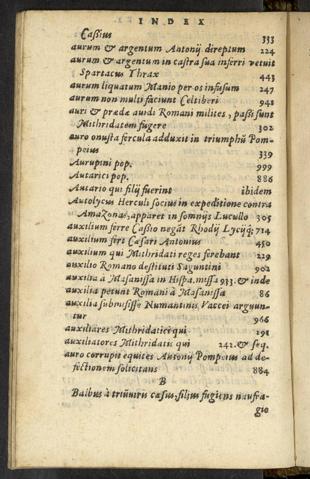 INDEX
Cassius 333
aurum & argentum Antonij direptum 224
aurum & argentum in castra sua inferri vetuit
Spartacus Thrax 443
aurum liquatum Manio per os infusum 247
aurum non multi faciunt Celtiberi 941
auri & prædæ avidi Romani milites, passi sunt
Mithridatem fugere 302
auro onusta fercula adduxit in triumphũ Pom-
peius 339
Aurupini pop. 999
Autarici pop. 886
Autario qui filij fuerint ibidem
Autolycus Herculi socius in expeditione contra
Amazonas, apparet in somnijs Lucullo 305
auxilium ferre Cassio negãt Rhodij Lycijq; 714
auxilium fert Cæsari Antonius 450
auxilium qui Mithridati reges ferebant 229
auxilio Romano destituti Saguntini 902
auxilia à Masanissa in Hispa. missa 933. & inde
auxilia petunt Romani à Masanissa 86
auxilia submisisse Numantinis Vaccei arguun-
tur 966
auxiliares Mithridatici qui 191
auxiliatores Mithridatis qui 242. & seq.
auro corrupit equites Antonij Pompeius ad de-
fectionem solicitans 884
B
Balbus à triũviris cæsus, filius fugiens naufra-
gio